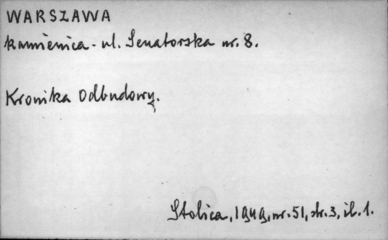 WARSZAWA
kamienica - ul. Senatorska nr. 8.
Kronika Odbudowy.
Stolica, 1949, nr. 51, str. 3, il. 1.